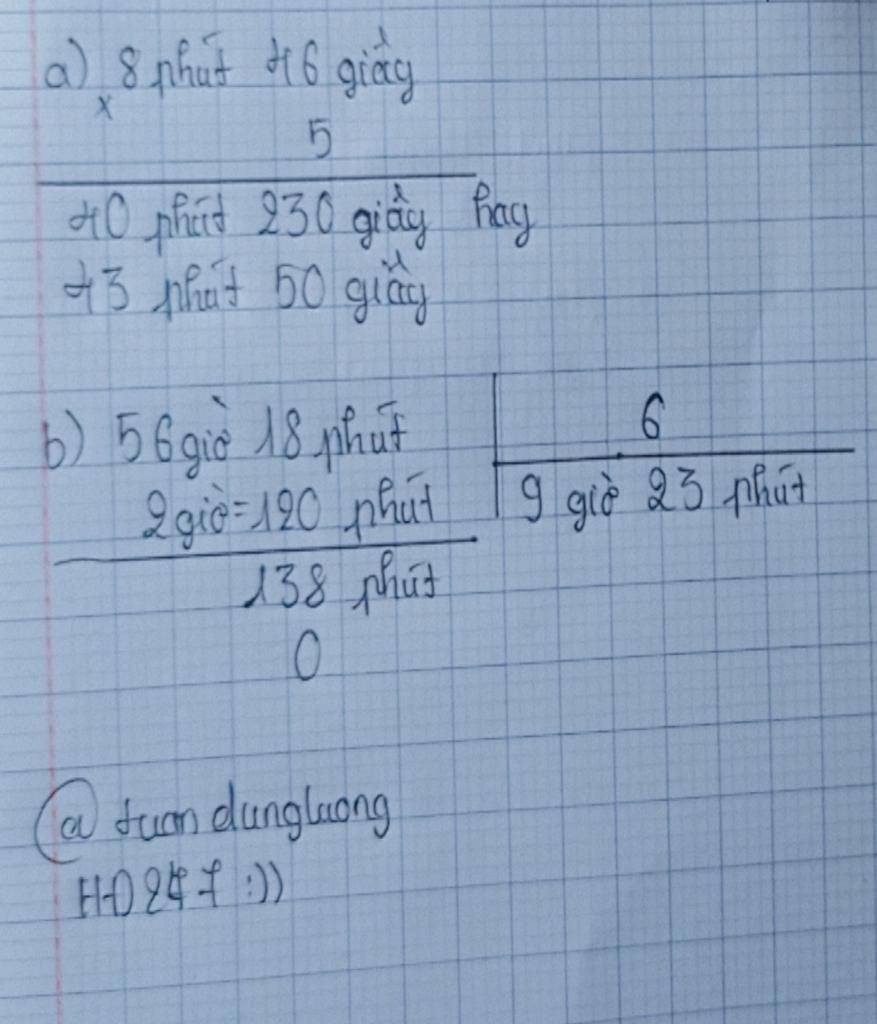 a) 8 phút 46 giây
x
5
40 phút 230 giây hay
43 phút 50 giây
b) 56 giờ 18 phút
6
2 giờ = 120 phút
9 giờ 23 phút
138 phút
0
@ tuandungluong
HD247 :))